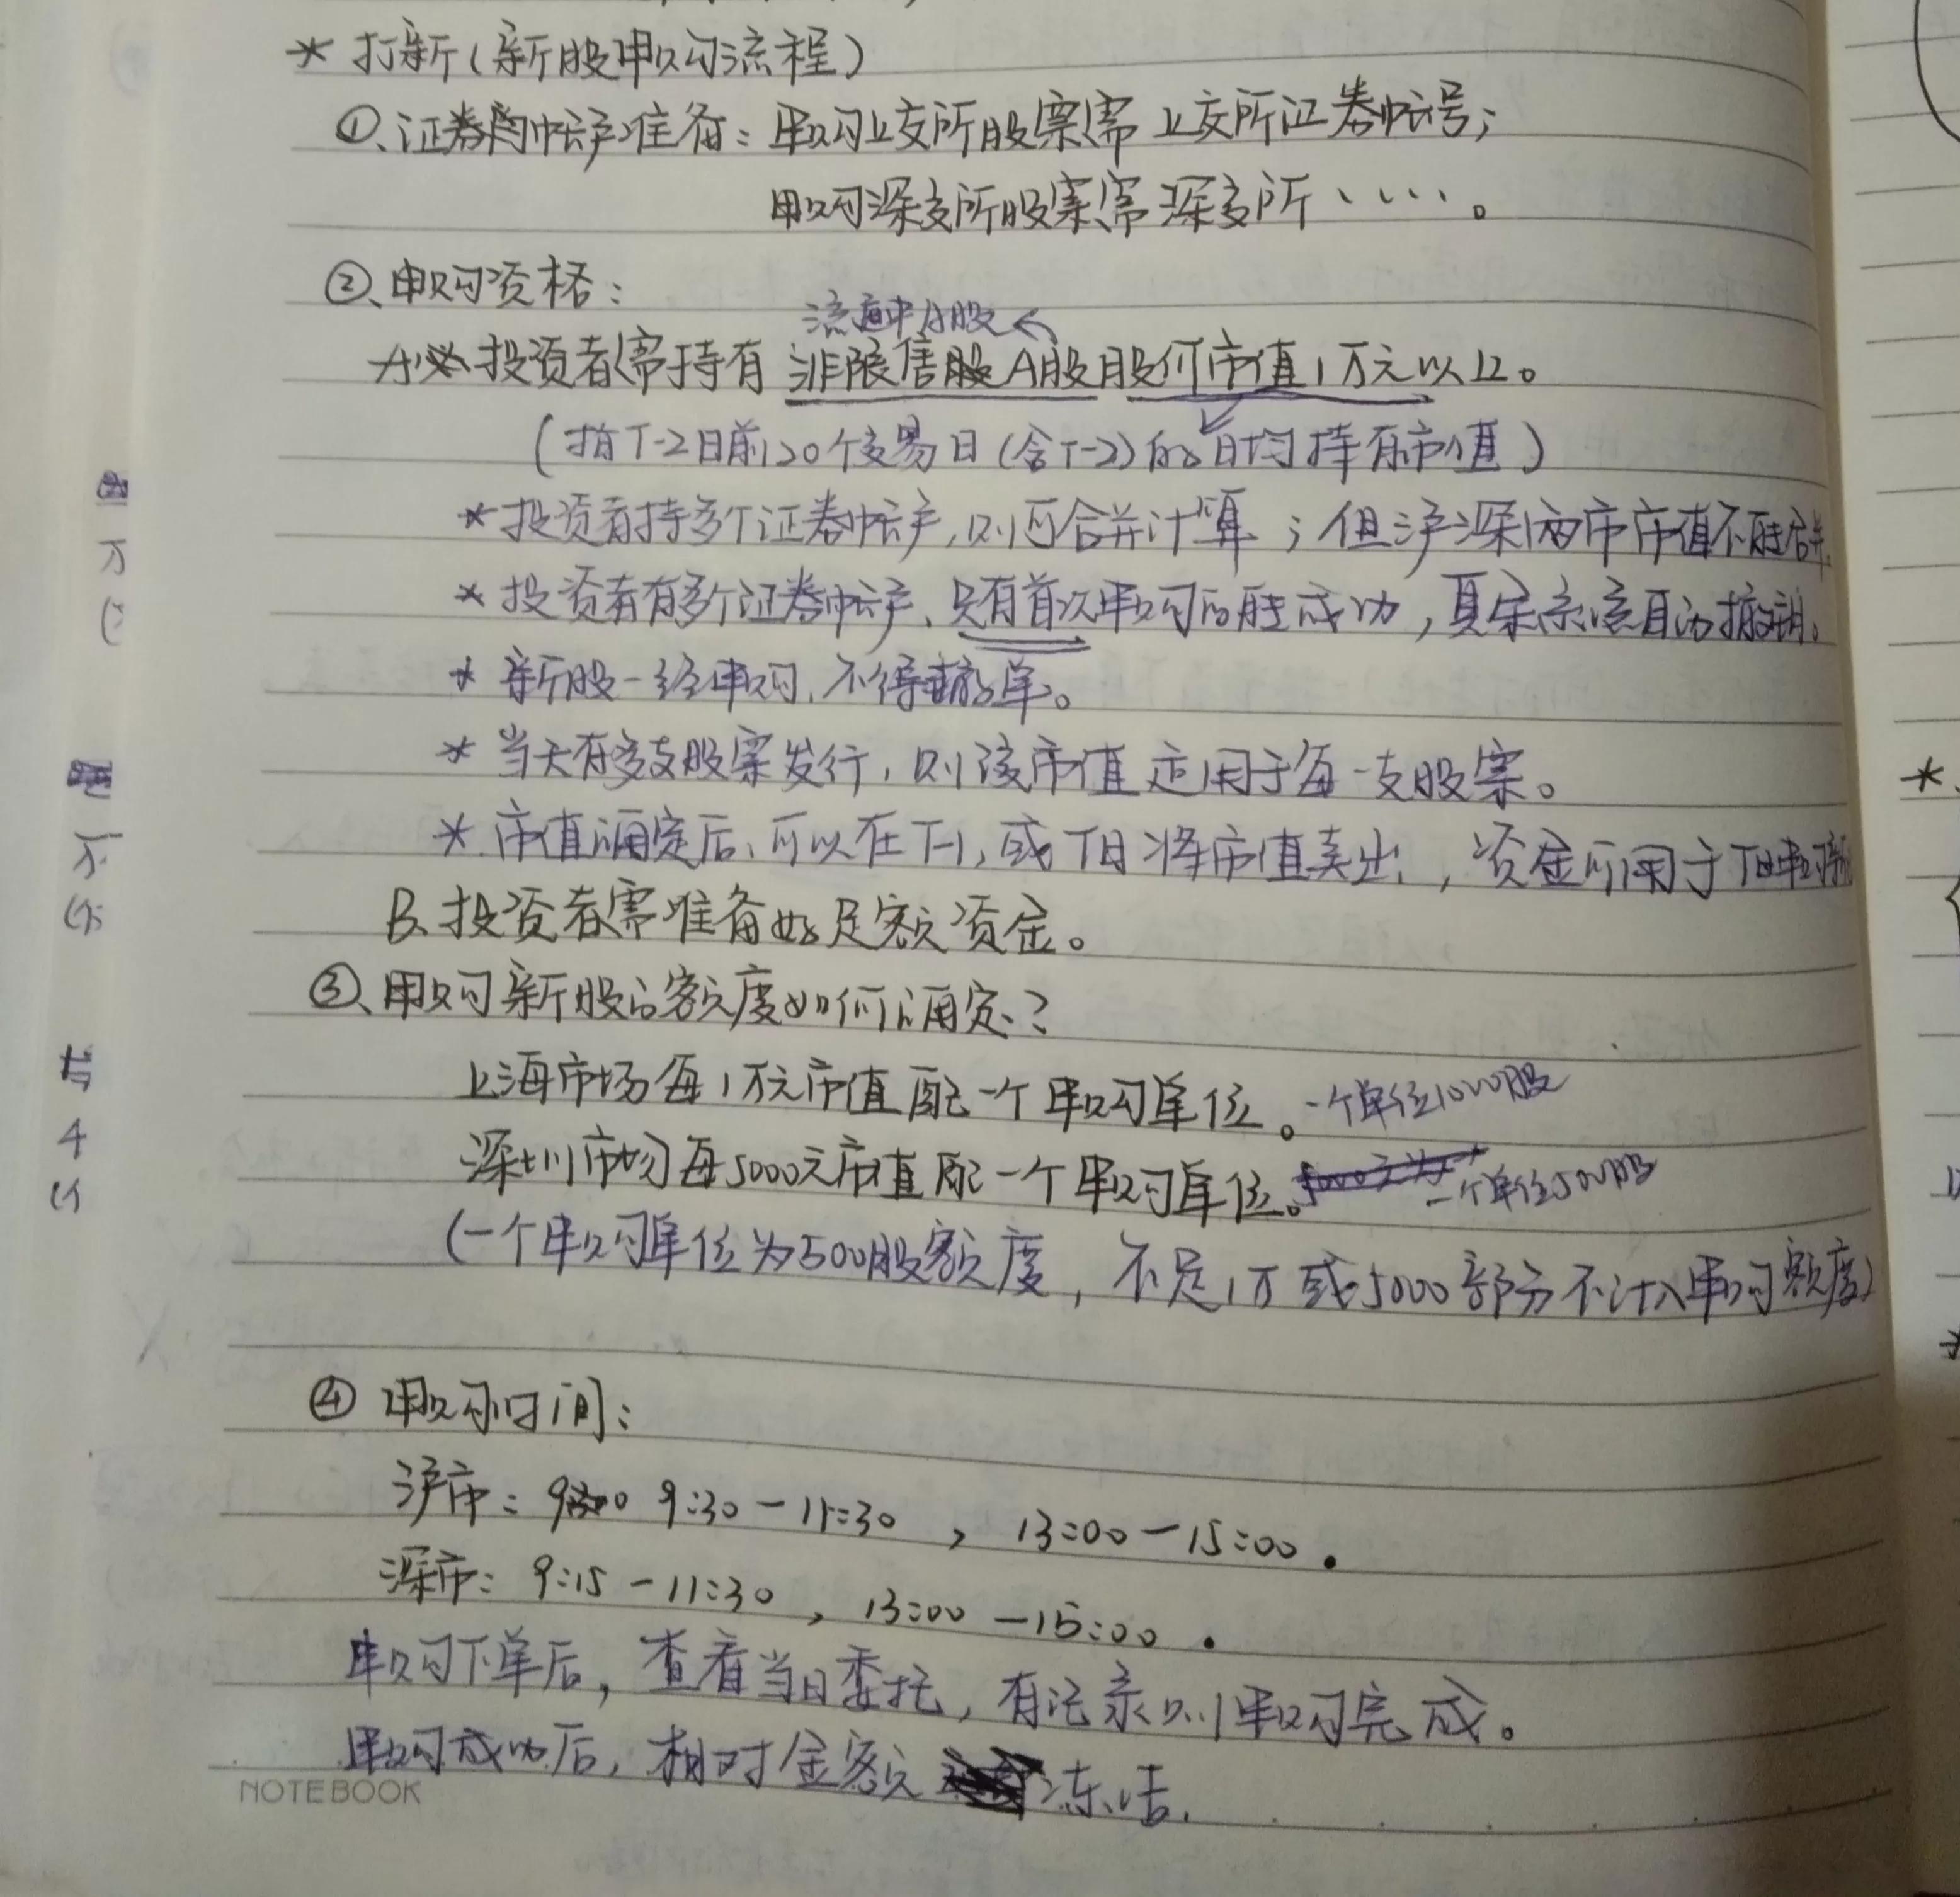 * 打新（新股申购流程）
①、证券帐户准备：申购上交所股票需上交所证券帐号；
申购深交所股票需深交所、….。
②、申购资格：
流通中A股
A、投资者需持有非限售股A股股份市值1万元以上。
（指T-2日前20个交易日（含T-2）的日均持有市值）
* 投资者持多个证券帐户，则可合并计算；但沪深两市市值不能合并.
* 投资者有多个证券帐户、只有首次申购的能成功，其余系统自动撤销。
* 新股一经申购，不得撤单。
* 当天有多支股票发行，则该市值适用于每一支股票。
* 市值确定后，可以在T-1，或T日将市值卖出，资金可用于T日申购新
B、投资者需准备好足额资金。
③、申购新股的额度如何确定？
上海市场每1万元市值配一个申购单位。一个单位1000股
深圳市场每5000元市值配一个申购单位。一个单位500股
（一个申购单位为500股额度，不足1万或5000部分不计入申购额度）
④ 申购时间：
沪市：9:30－11:30，13:00－15:00.
深市：9:15－11:30，13:00－15:00.
申购下单后，查看当日委托，有记录则申购完成。
申购成功后，相对金额冻结.
NOTEBOOK